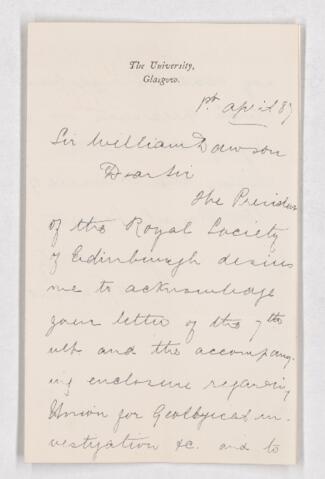 The University,
Glasgow.
1st April 87
Sir William Dawson
Dear Sir
The Presiden
of the Royal Society
of Edinburgh desires
me to acknowledge
your letter of the 7th
ult. and the accompany-
ing enclosure regarding
Union for Geological in-
vestigation &c. and to